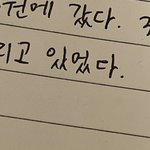 에 갔다.
리고 있었다.